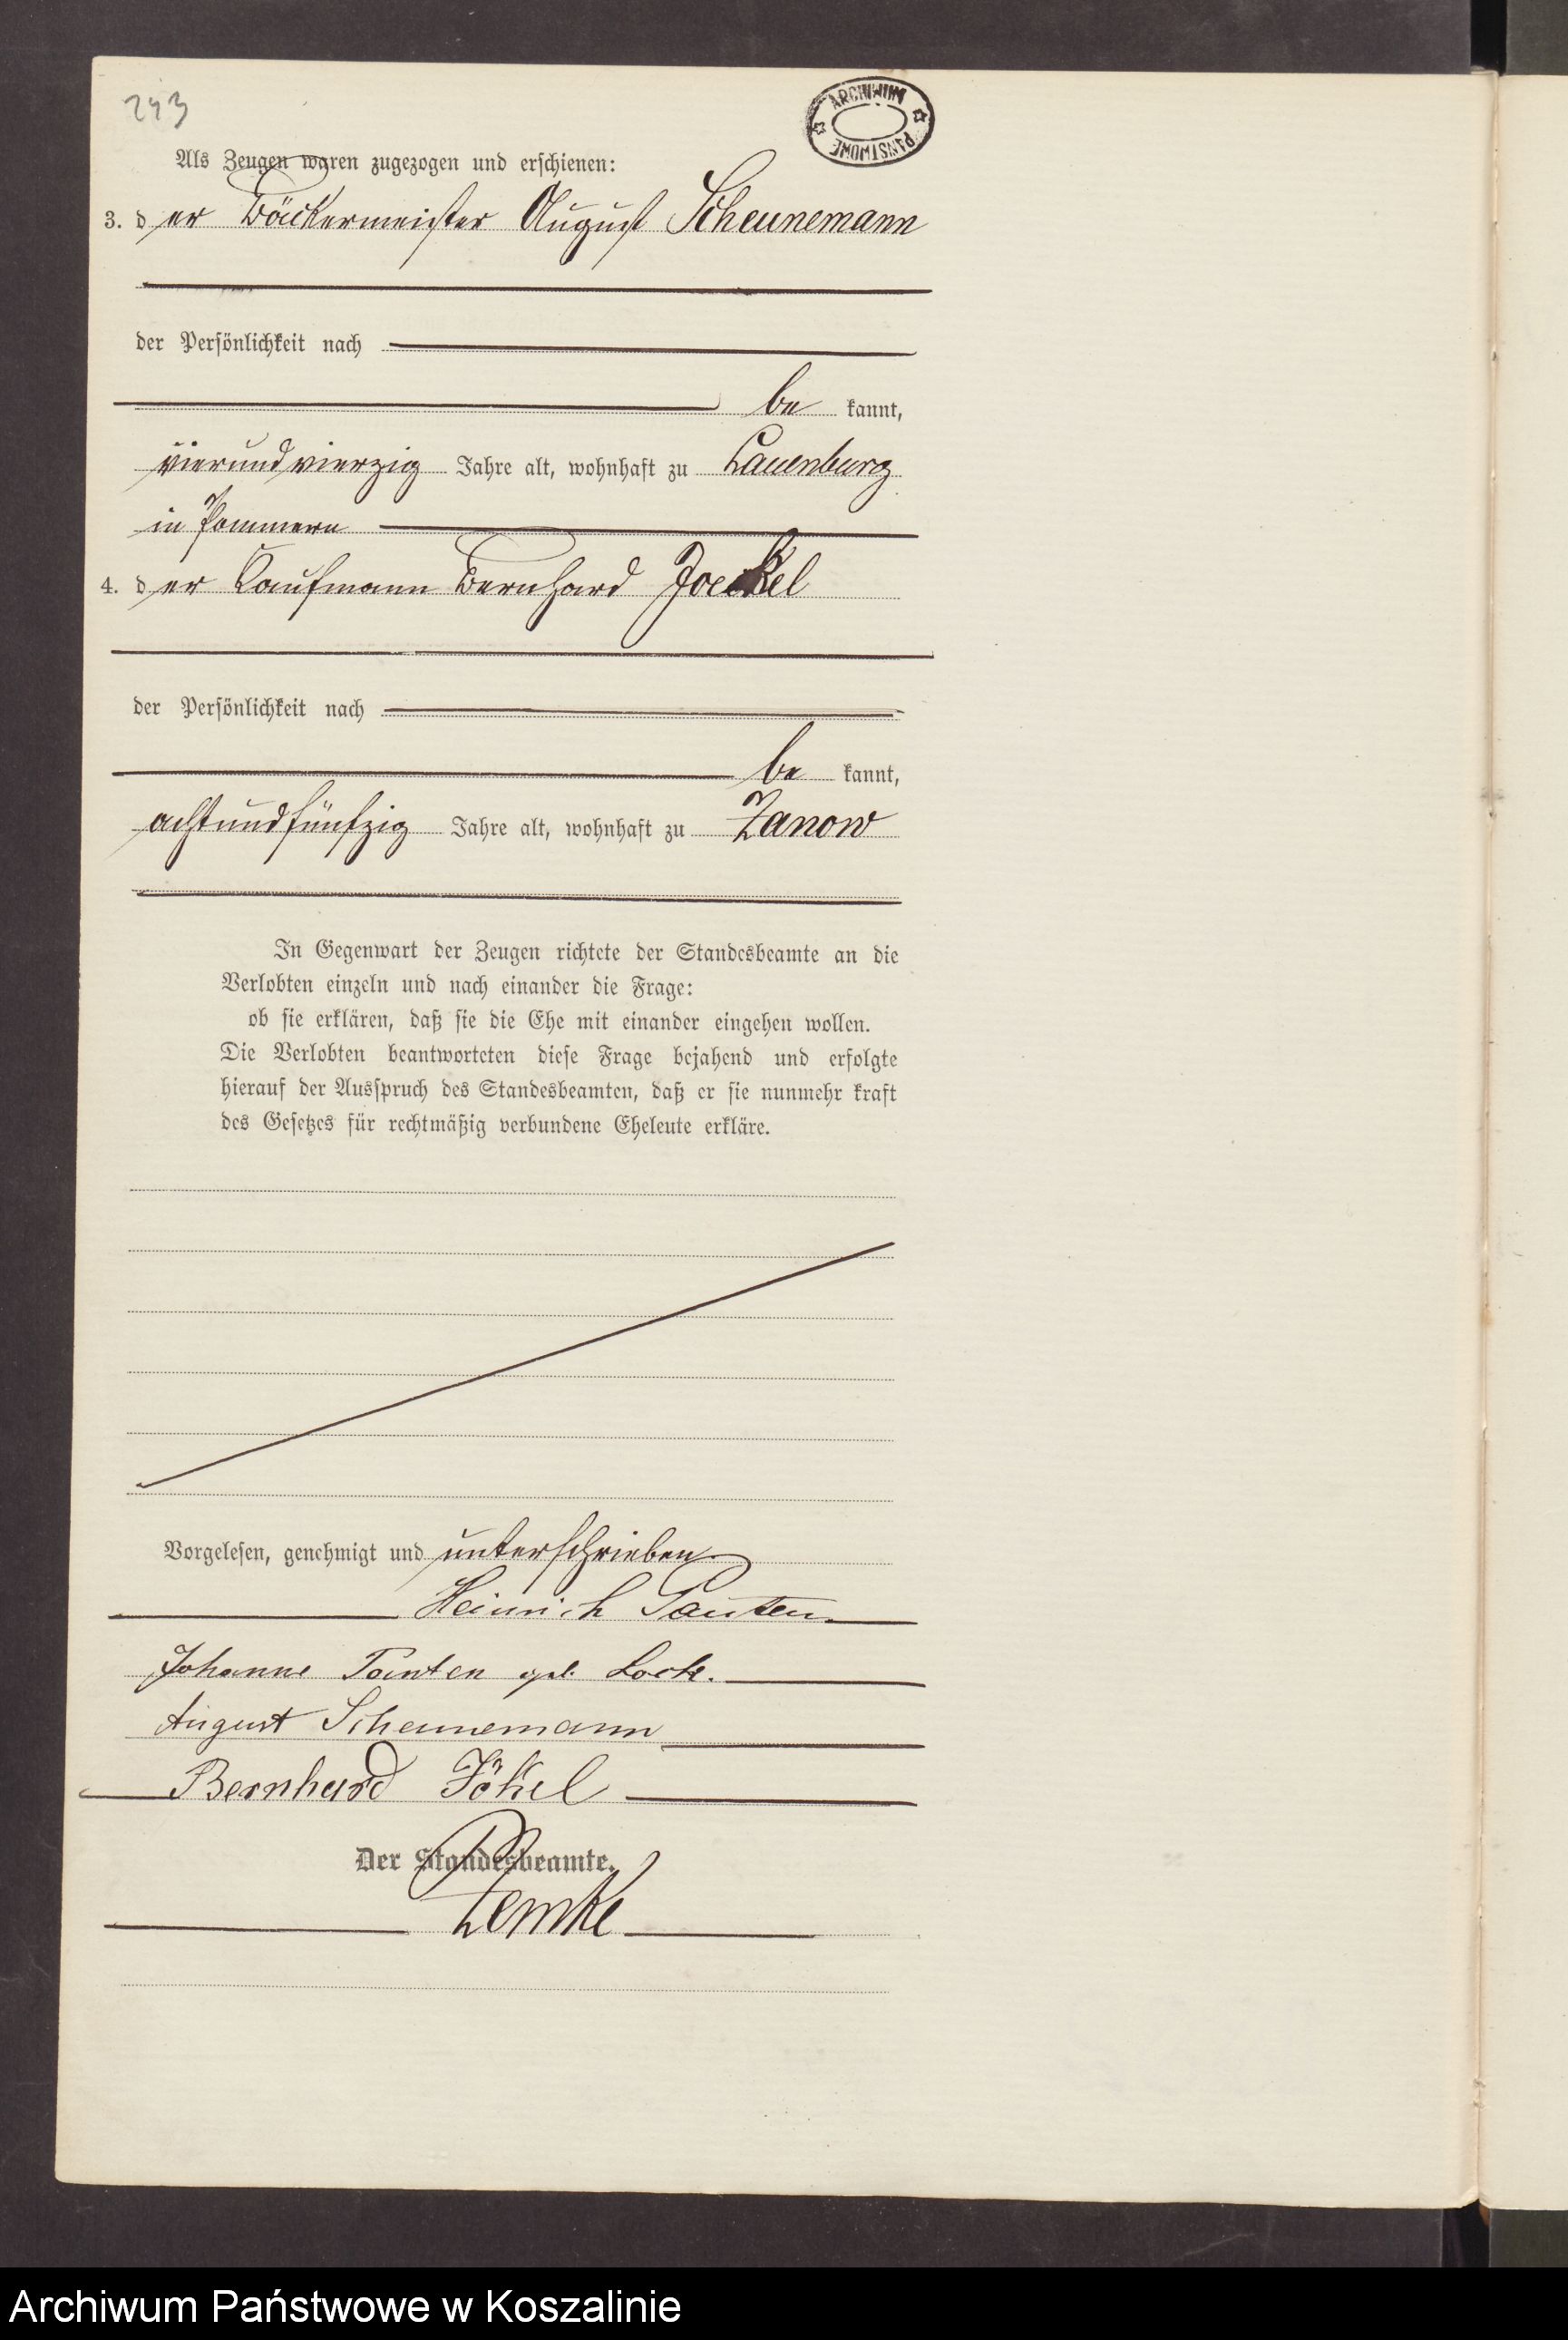 243
ARCHIWUM PAŃSTWOWE
Als Zeugen waren zugezogen und erschienen:
3. der Bäckermeister August Scheunemann
der Persönlichkeit nach
be kannt,
vierundvierzig Jahre alt, wohnhaft zu Lauenburg
in Pommern
4. der Kaufmann Bernhard Joeckel
der Persönlichkeit nach
be kannt,
achtundfünfzig Jahre alt, wohnhaft zu Zanow
In Gegenwart der Zeugen richtete der Standesbeamte an die
Verlobten einzeln und nach einander die Frage:
ob sie erklären, daß sie die Ehe mit einander eingehen wollen.
Die Verlobten beantworteten diese Frage bejahend und erfolgte
hierauf der Ausspruch des Standesbeamten, daß er sie nunmehr kraft
des Gesetzes für rechtmäßig verbundene Eheleute erkläre.
Vorgelesen, genehmigt und unterschrieben
Heinrich Panten
Johanne Panten geb.
August Scheunemann
Bernhard Jökel
Der Standesbeamte.
Lemke
Archiwum Państwowe w Koszalinie